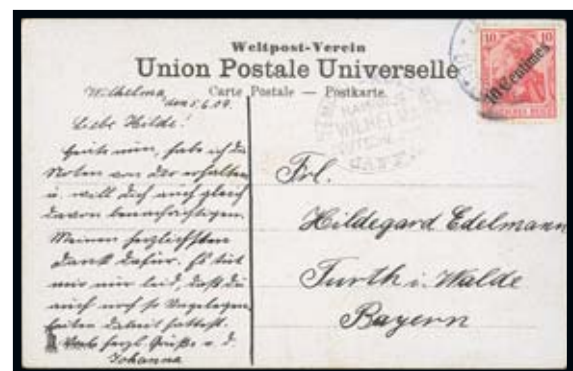 Weltpost-Verein
Union Postale Universelle
Carte Postale — Postkarte.
10 10
10 Centimes
DEUTSCHES REICH
WILHELMA
JAFFA
Wilhelma,
den 5.6.09.
Liebe Hilde!
Heute nun, habe ich die
Noten von dir erhalten
u. will dich auch gleich
davon benachrichtigen.
Meinen herzlichsten
Dank dafür. Es tut
mir nur leid, daß du
auch noch so Ungelegen
heiten damit hattest.
herzl. Grüße v. d.
Johanna
Frl.
Hildegard Edelmann
Furth i. Walde
Bayern